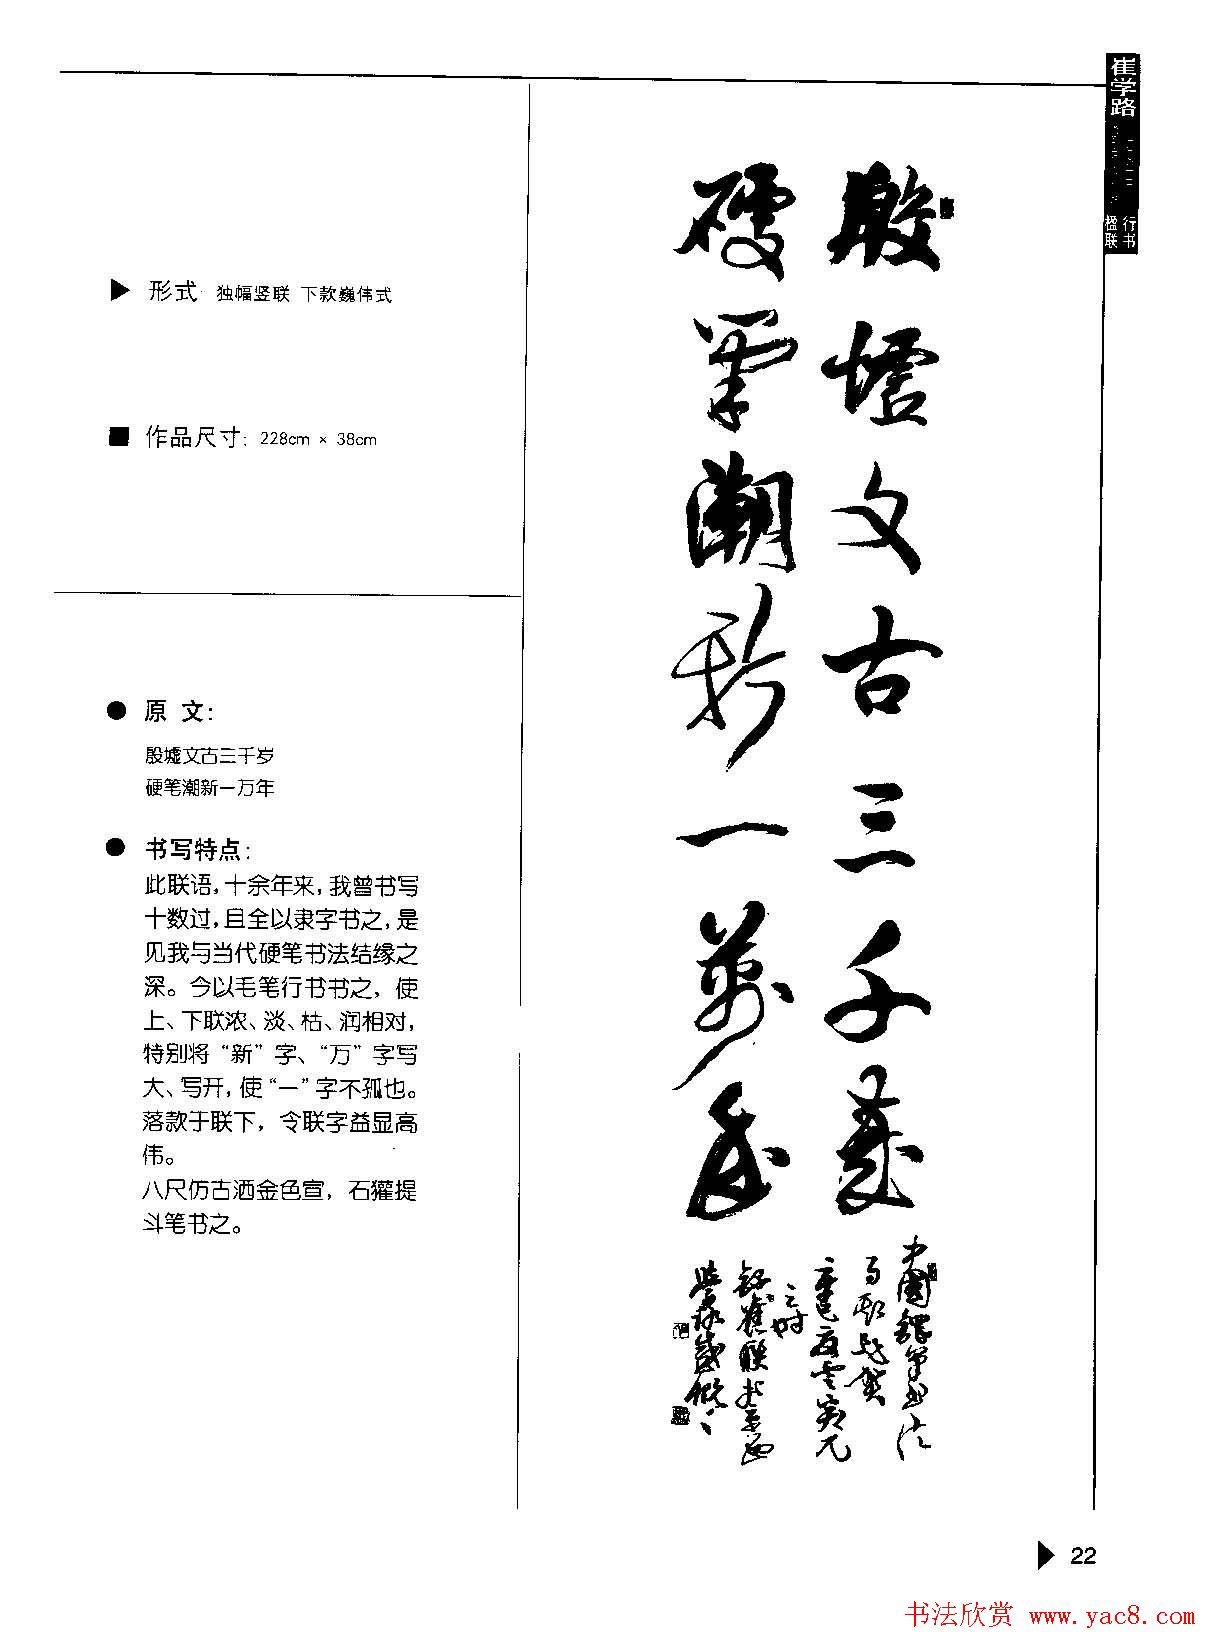 崔学路
行书
楹联
▶ 形式 独幅竖联 下款巍伟式
■ 作品尺寸：228cm × 38cm
● 原 文：
殷墟文古三千岁
硬笔潮新一万年
● 书写特点：
此联语，十余年来，我曾书写
十数过，且全以隶字书之，是
见我与当代硬笔书法结缘之
深。今以毛笔行书书之，使
上、下联浓、淡、枯、润相对，
特别将“新”字、“万”字写
大、写开，使“一”字不孤也。
落款于联下，令联字益显高
伟。
八尺仿古洒金色宣，石獾提
斗笔书之。
殷墟文古三千岁
硬笔潮新一萬年
▶ 22
书法欣赏 www.yac8.com